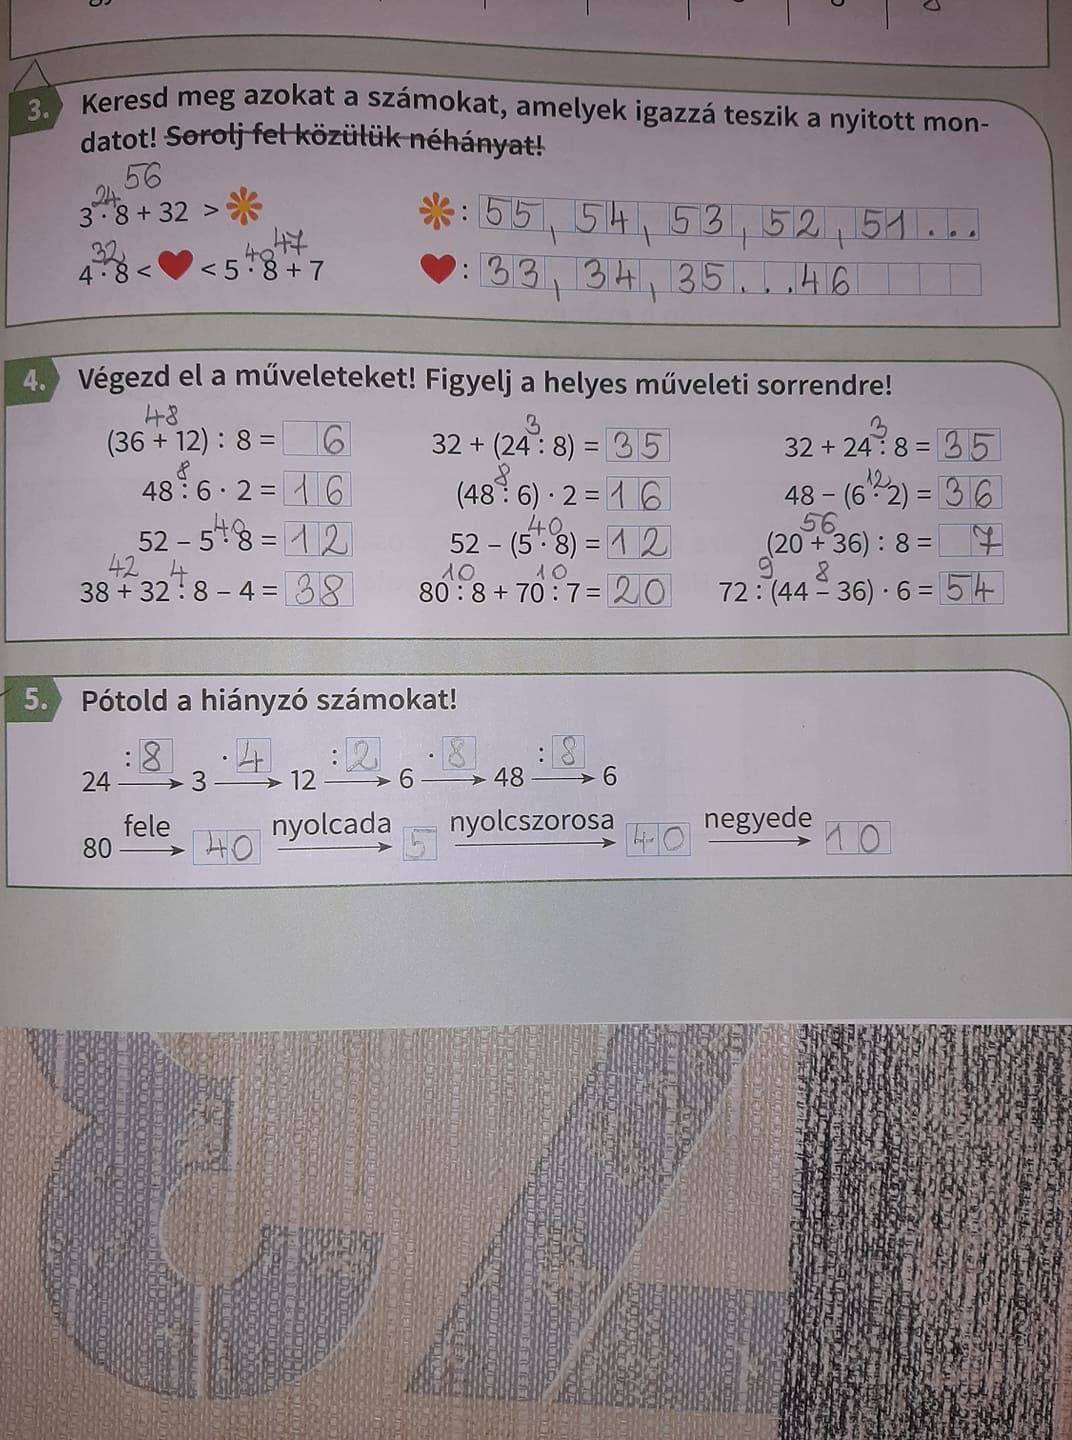 3. Keresd meg azokat a számokat, amelyek igazzá teszik a nyitott mon-
datot! Sorolj fel közülük néhányat!
24 56
3 · 8 + 32 > : 55, 54, 53, 52, 51...
32 40 47
4 · 8 < < 5 · 8 + 7 : 33, 34, 35...46
4. Végezd el a műveleteket! Figyelj a helyes műveleti sorrendre!
48 3 3
(36 + 12) : 8 = 6 32 + (24 : 8) = 35 32 + 24 : 8 = 35
8 8 12
48 : 6 · 2 = 16 (48 : 6) · 2 = 16 48 – (6 · 2) = 36
40 40 56
52 – 5 · 8 = 12 52 – (5 · 8) = 12 (20 + 36) : 8 = 7
42 4 10 10 9 8
38 + 32 : 8 – 4 = 38 80 : 8 + 70 : 7 = 20 72 : (44 – 36) · 6 = 54
5. Pótold a hiányzó számokat!
: 8 · 4 : 2 · 8 : 8
24 3 12 6 48 6
fele nyolcada nyolcszorosa negyede
80 40 5 40 10